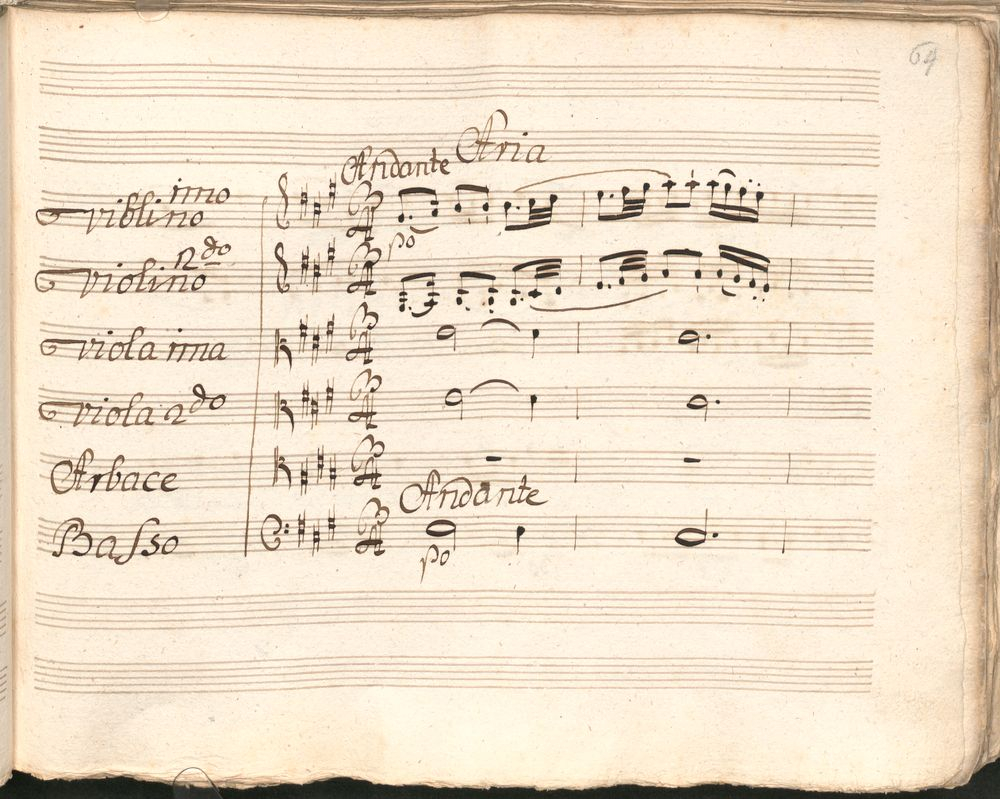 64
Aria
Andante
violino imo
po
violino 2do
viola ima
viola 2do
Arbace
Andante
Basso
po